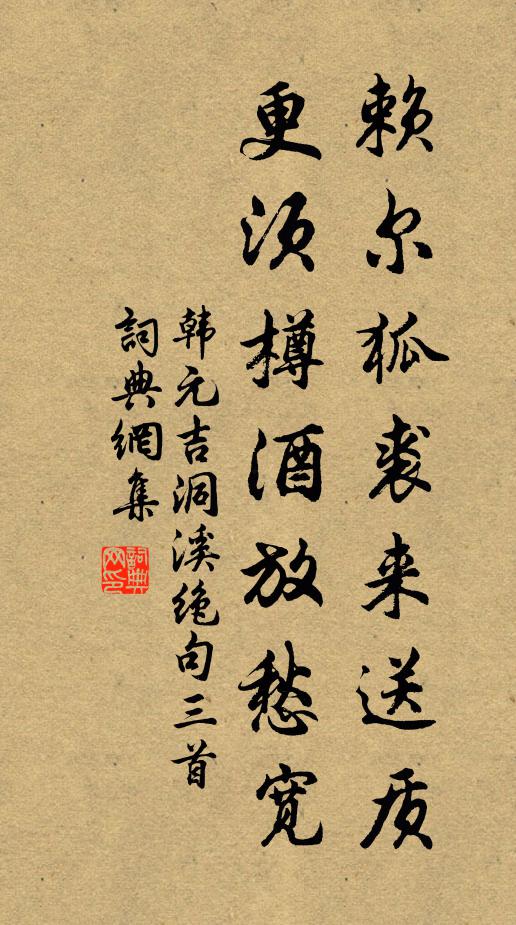 赖尔狐裘来送质
更须樽酒放愁宽
韩元吉洞溪绝句三首
詞典網集
詞典网印